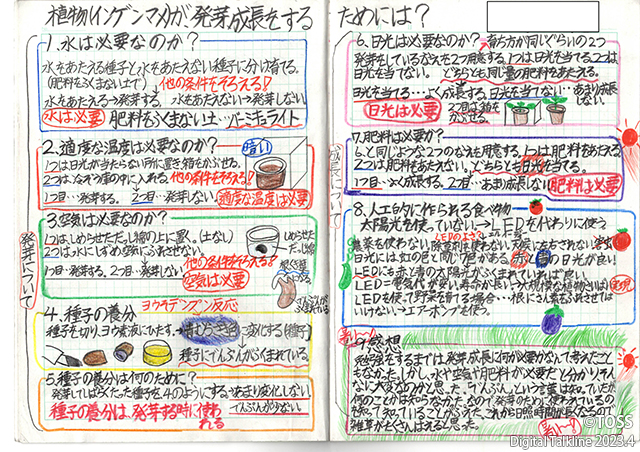 植物(インゲンマメ)が発芽成長をする
ためには?
1.水は必要なのか?
水をあたえる種子と水をあたえない種子に分け育てる。
(肥料をふくまない土で) 他の条件をそろえる!
水をあたえる→発芽する。水をあたえない→発芽しない。
水は必要 肥料をふくまない土…バーミキュライト
2.適度な温度は必要なのか? 暗い
1つは日光が当たらない所に置き箱をかぶせる。
2つは、冷ぞう庫の中に入れる。他の条件をそろえる!
1つ目…発芽する。2つ目…発芽しない。適度な温度は必要
3.空気は必要なのか?
1つは、しめらせただっし綿の上に置く。(土なし)
2つは水にしずめ空気にふれさせない。
他の条件をそろえる!
1つ目…発芽する。2つ目…発芽しない。
空気は必要
しめらせた
だっし綿
4.種子の養分 ヨウ素デンプン反応
種子を切り、ヨウ素液にひたす。→青むらさき色に変化する(種子)
種子にでんぷんがふくまれている。
5.種子の養分は何のために?
発芽してしばらくたった種子を4のようにする。→あまり変化しない。
でんぷんが少ない。
種子の養分は、発芽する時に使われる
発芽について
成長について
6.日光は必要なのか? 育ち方が同じぐらいの2つ
発芽をしているなえを2つ用意する。1つは日光を当てる。2つは
日光を当てない。どちらとも同量の肥料をあたえる。
日光を当てる…よく成長する。日光を当てない…あまり成長しない。
日光は必要 2つ目は箱をかぶせる。
7.肥料は必要か?
6.と同じような2つのなえを用意する。1つは肥料をあたえる
2つは肥料をあたえない。どちらとも日光を当てる。
1つ目…よく成長する。2つ目…あまり成長しない 肥料は必要
8.人工的に作られる食べ物
太陽光を使っていない→LEDを代わりに使う
LEDのよさ
農薬を使わない 除草剤を使わない 天候に左右されない
日光には虹の色と同じ7色がある 赤と青の日光が良い
LEDにも赤と青の太陽光がふくまれていれば良い
LED=電気代が安い寿命が長い→大規模な植物さいばい実現
LEDを使って野菜を育てる場合…根にさん素をふれさせては
いけない→エアーポンプを使う。
9.感想
勉強をするまでは、発芽、成長に何が必要かなんて考えたことも
なかった。しかし、水や空気や肥料が必要だと分かりそんな
に大変なのかと思った。「でんぷん」という言葉は知っていたが
何のことかは知らなかった。なので発芽のために使われているの
を知って、知っていることがふえた。これから日照時間が長くなるので
雑草がたくさんはえると思った。
©TOSS
Digital Talkline 2023.4